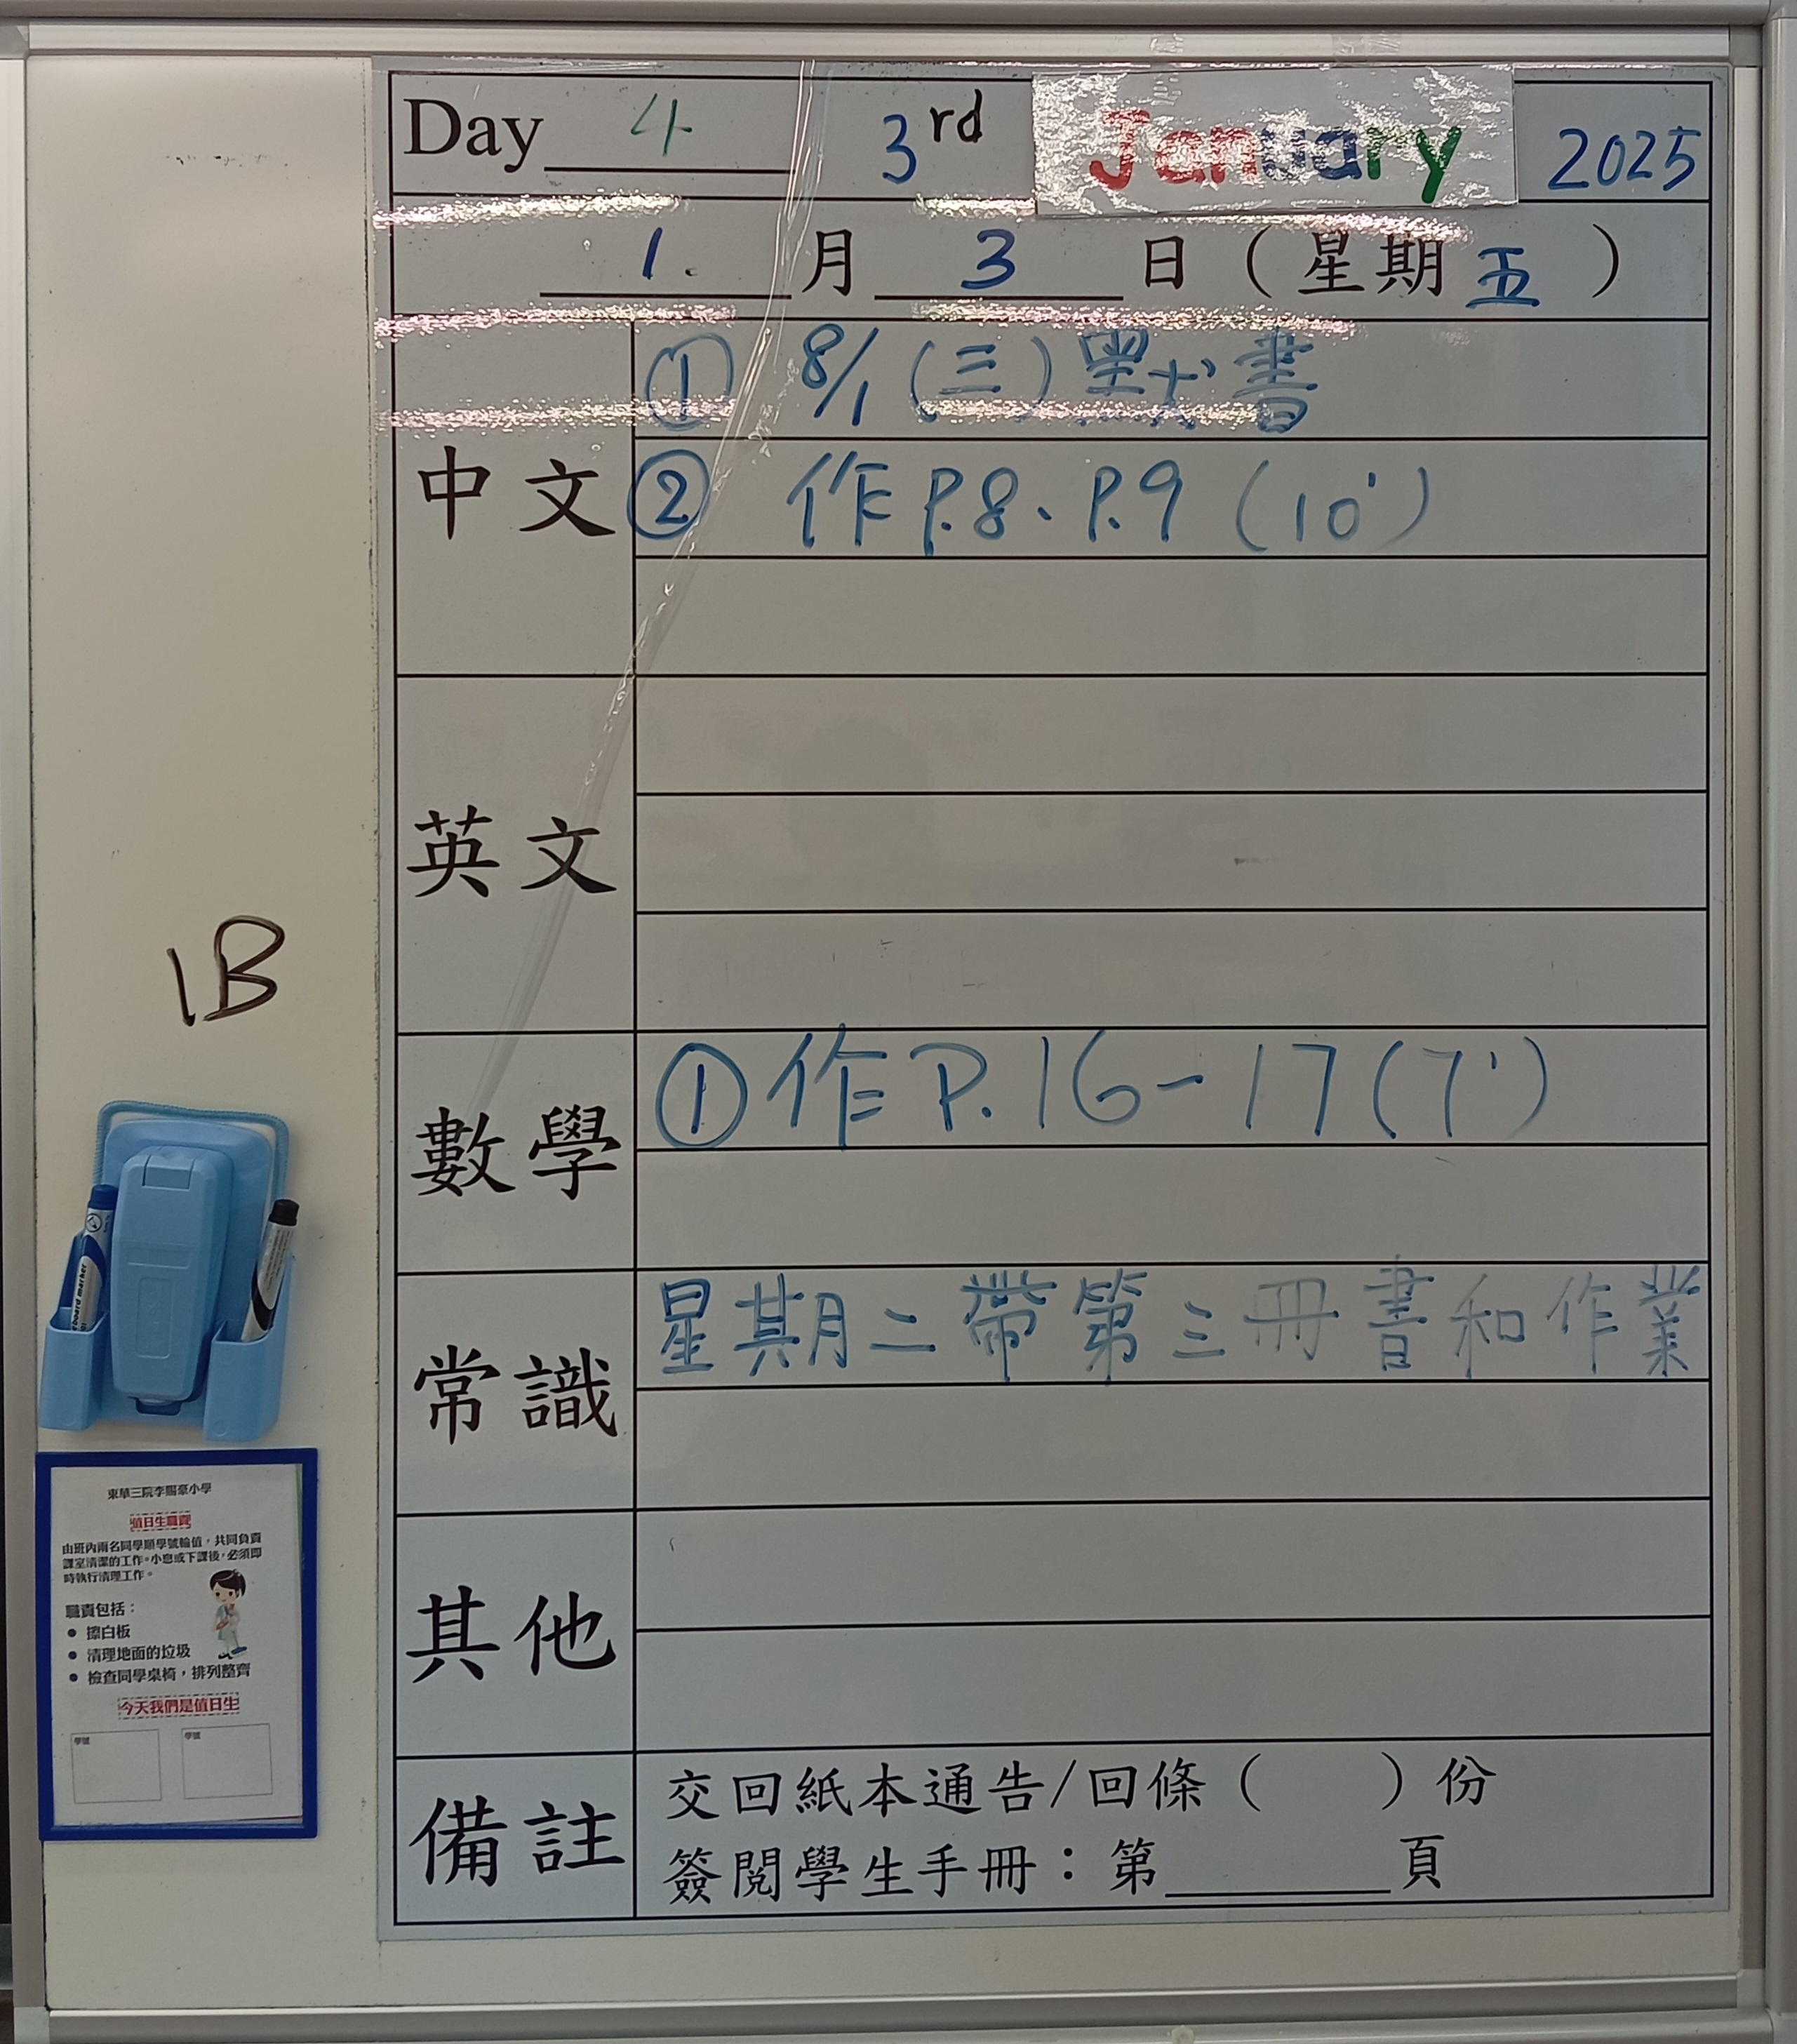 Day 4 3rd January 2025
1. 月 3 日 ( 星期 五 )
中文
① 8/1 (三) 默書
② 作 P.8、P.9 (10')
英文
數學
① 作 P.16-17 (7')
常識
星期二帶第三冊書和作業
其他
備註
交回紙本通告/回條 ( ) 份
簽閱學生手冊：第______頁
1B
board marker
東華三院李賜豪小學
值日生職責
由班內兩名同學順學號輪值，共同負責
課室清潔的工作。小息或下課後，必須即
時執行清理工作。
職責包括：
● 擦白板
● 清理地面的垃圾
● 檢查同學桌椅，排列整齊
今天我們是值日生
學號 學號